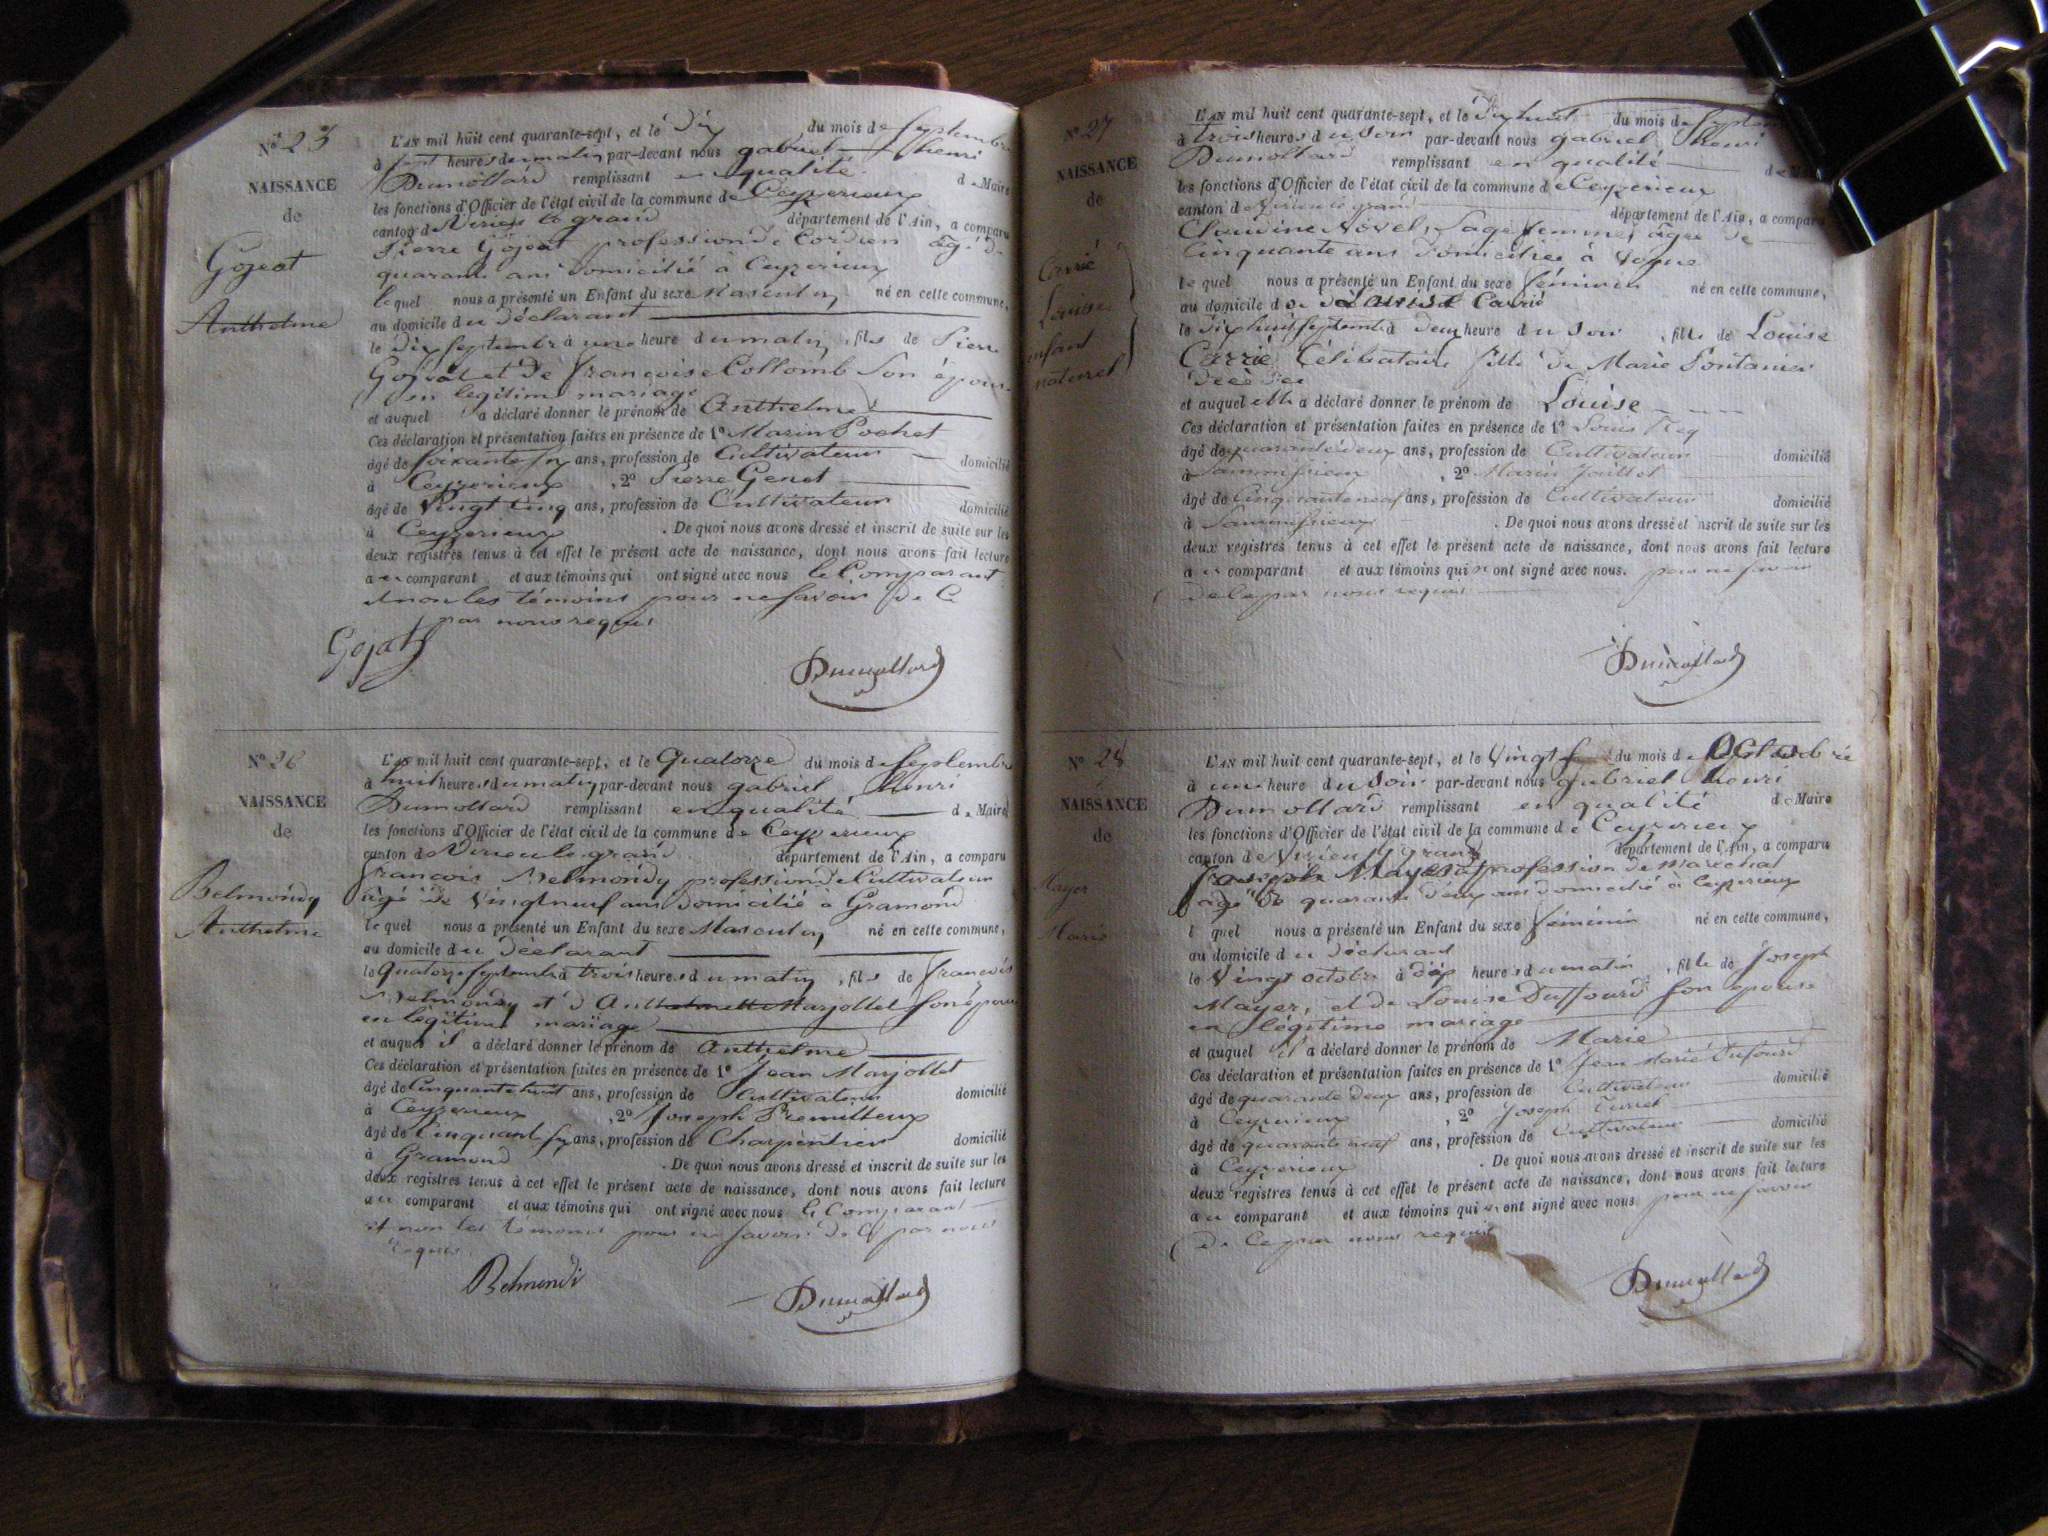 Nº 25
NAISSANCE
de
Gojeat
Anthelme
L'AN mil huit cent quarante-sept, et le Dix du mois de Septembre
à sept heures du matin par-devant nous gabriel henri
Dumollard remplissant en qualité de Maire
les fonctions d'Officier de l'état civil de la commune de Ceyzerieux
canton de Virieu le grand département de l'Ain, a comparu
Pierre Gojeat profession de Cordier âgé de
quarante ans Domicilié à Ceyzerieux
lequel nous a présenté un Enfant du sexe Masculin né en cette commune,
au domicile du Déclarant
le dix Septembre à une heure du matin, fils de Pierre
Gojeat et de françoise Collomb Son épouse
en légitime mariage
et auquel a déclaré donner le prénom de Anthelme
Ces déclaration et présentation faites en présence de 1º Marin Pochet
âgé de soixante six ans, profession de Cultivateur domicilié
à Ceyzerieux, 2º Pierre Genet
âgé de Vingt Cinq ans, profession de Cultivateur domicilié
à Ceyzerieux. De quoi nous avons dressé et inscrit de suite sur les
deux registres tenus à cet effet le présent acte de naissance, dont nous avons fait lecture
au comparant et aux témoins qui ont signé avec nous le Comparant
et non les témoins pour ne savoir de Ce
par nous requis
Gojat
Dumollard
Nº 26
NAISSANCE
de
Belmondy
Anthelme
L'AN mil huit cent quarante-sept, et le Quatorze du mois de Septembre
à huit heures du matin par-devant nous gabriel henri
Dumollard remplissant en qualité de Maire
les fonctions d'Officier de l'état civil de la commune de Ceyzerieux
canton de Virieu le grand département de l'Ain, a comparu
françois Belmondy profession de Cultivateur
âgé de Vingt neuf ans Domicilié à Gramond
lequel nous a présenté un Enfant du sexe Masculin né en cette commune,
au domicile du Déclarant
le Quatorze Septembre à trois heures du matin, fils de françois
Belmondy et d'Anthelmette Marjollet son épouse
en légitime mariage
et auquel il a déclaré donner le prénom de Anthelme
Ces déclaration et présentation faites en présence de 1º Jean Marjollet
âgé de Cinquante huit ans, profession de Cultivateur domicilié
à Ceyzerieux, 2º Joseph Premilleux
âgé de Cinquante six ans, profession de Charpentier domicilié
à Gramond. De quoi nous avons dressé et inscrit de suite sur les
deux registres tenus à cet effet le présent acte de naissance, dont nous avons fait lecture
au comparant et aux témoins qui ont signé avec nous le Comparant
et non les témoins pour ne savoir de Ce par nous
requis
Belmondi
Dumollard
Nº 27
NAISSANCE
de
Carrié
Louise
enfant
naturel
L'AN mil huit cent quarante-sept, et le Dix huit du mois de Septembre
à trois heures du soir par-devant nous gabriel henri
Dumollard remplissant en qualité de
les fonctions d'Officier de l'état civil de la commune de Ceyzerieux
canton de Virieu le grand département de l'Ain, a comparu
Claudine Novel, Sage femme, âgée de
Cinquante ans Domiciliée à
lequel nous a présenté un Enfant du sexe féminin né en cette commune,
au domicile de Louise Carrié
le Dix huit Septembre à Deux heure du soir, fille de Louise
Carrié Célibataire fille de Marie Fontanier
Décédée
et auquel elle a déclaré donner le prénom de Louise
Ces déclaration et présentation faites en présence de 1º Louis
âgé de quarante deux ans, profession de Cultivateur domicilié
à, 2º Marin Jaillet
âgé de Cinquante neuf ans, profession de Cultivateur domicilié
à. De quoi nous avons dressé et inscrit de suite sur les
deux registres tenus à cet effet le présent acte de naissance, dont nous avons fait lecture
au comparant et aux témoins qui n'ont signé avec nous. pour ne savoir
de Ce par nous requis
Dumollard
Nº 28
NAISSANCE
de
Mayer
Marie
L'AN mil huit cent quarante-sept, et le Vingt du mois de Octobre
à une heure du soir par-devant nous gabriel henri
Dumollard remplissant en qualité de Maire
les fonctions d'Officier de l'état civil de la commune de Ceyzerieux
canton de Virieu le grand département de l'Ain, a comparu
Joseph Mayer profession de Marechal
âgé de quarante Deux ans domicilié à Ceyzerieux
lequel nous a présenté un Enfant du sexe féminin né en cette commune,
au domicile du déclarant
le Vingt octobre à dix heures du matin, fille de Joseph
Mayer, et de Louise Duffourd son épouse
en légitime mariage
et auquel il a déclaré donner le prénom de Marie
Ces déclaration et présentation faites en présence de 1º Jean Marie Dufourd
âgé de quarante deux ans, profession de Cultivateur domicilié
à Ceyzerieux, 2º Joseph Turrel
âgé de quarante neuf ans, profession de Cultivateur domicilié
à Ceyzerieux. De quoi nous avons dressé et inscrit de suite sur les
deux registres tenus à cet effet le présent acte de naissance, dont nous avons fait lecture
au comparant et aux témoins qui n'ont signé avec nous pour ne savoir
de Ce par nous requis
Dumollard